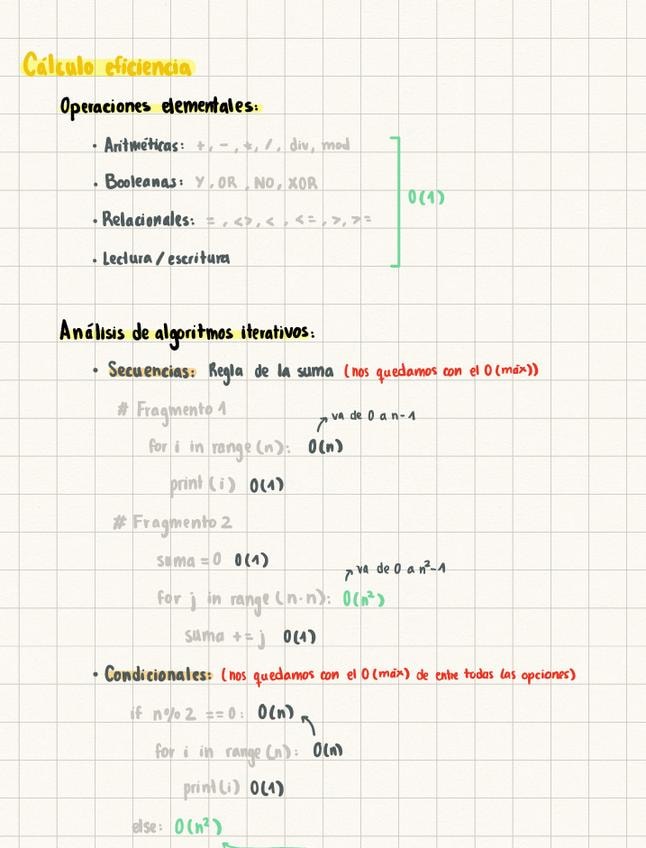 Cálculo eficiencia
Operaciones elementales:
• Aritméticas: +, -, *, /, div, mod
• Booleanas: Y, OR, NO, XOR
• Relacionales: =, <>, <, <=, >, >=
O(1)
• Lectura/escritura
Análisis de algoritmos iterativos:
• Secuencias: Regla de la suma (nos quedamos con el O(máx))
# Fragmento 1
va de 0 a n-1
for i in range(n): O(n)
print(i) O(1)
# Fragmento 2
suma = 0 O(1)
va de 0 a n²-1
for j in range(n·n): O(n²)
suma += j O(1)
• Condicionales: (nos quedamos con el O(máx) de entre todas las opciones)
if n%2 == 0: O(n)
for i in range(n): O(n)
print(i) O(1)
else: O(n²)